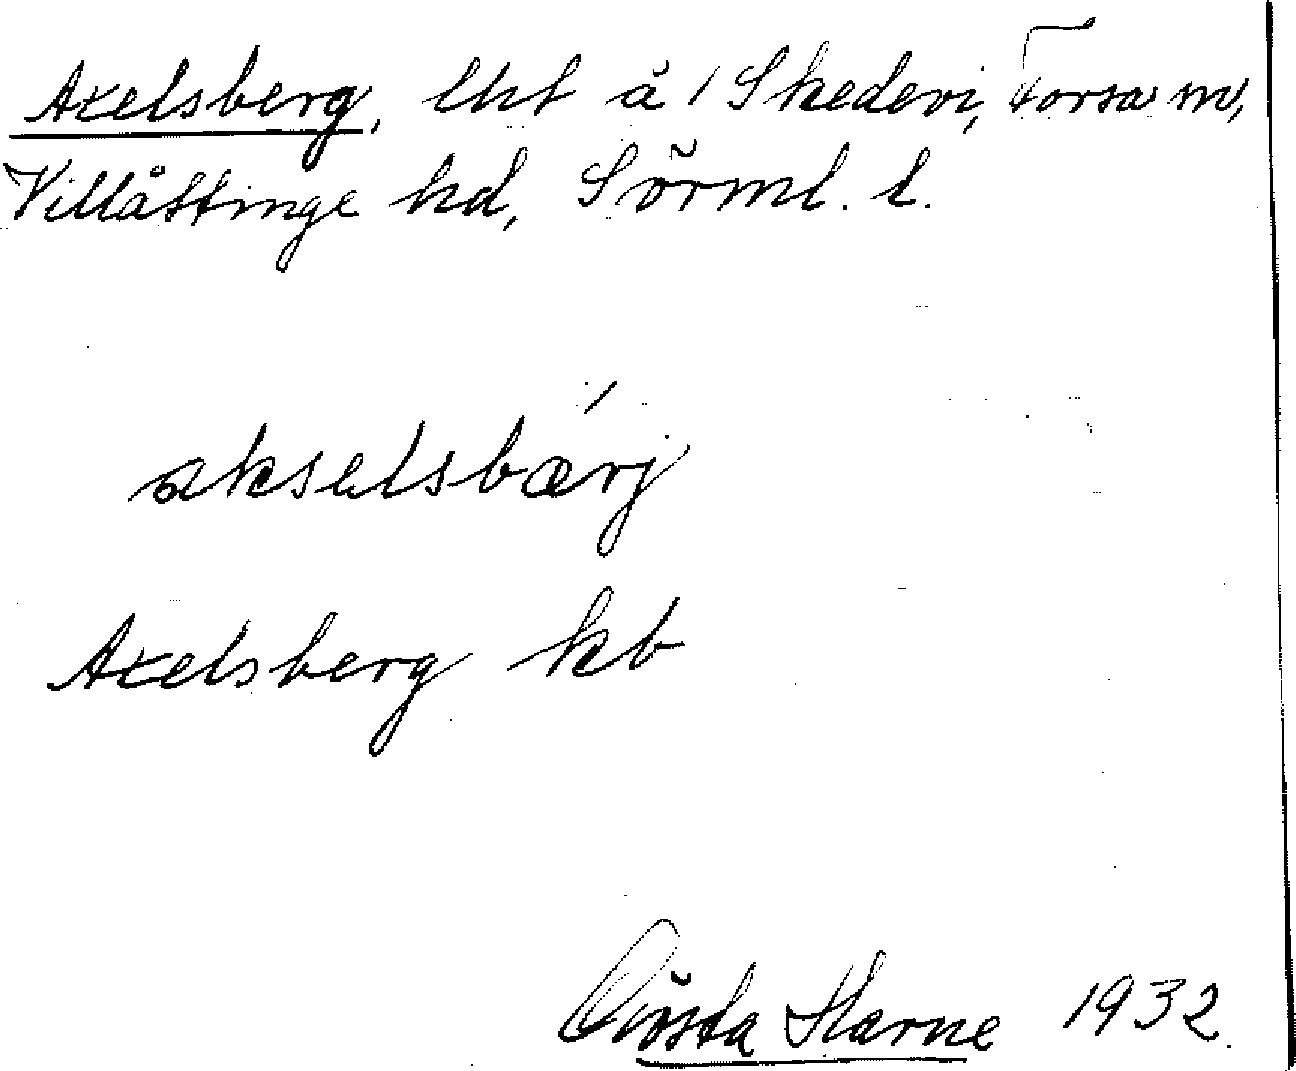 Axelsberg, lht å 1 Skedevi, Forsa sn,
Villåttinge hd, Sörml. l.
akselsbærj
Axelsberg kb
Gösta Harne 1932.